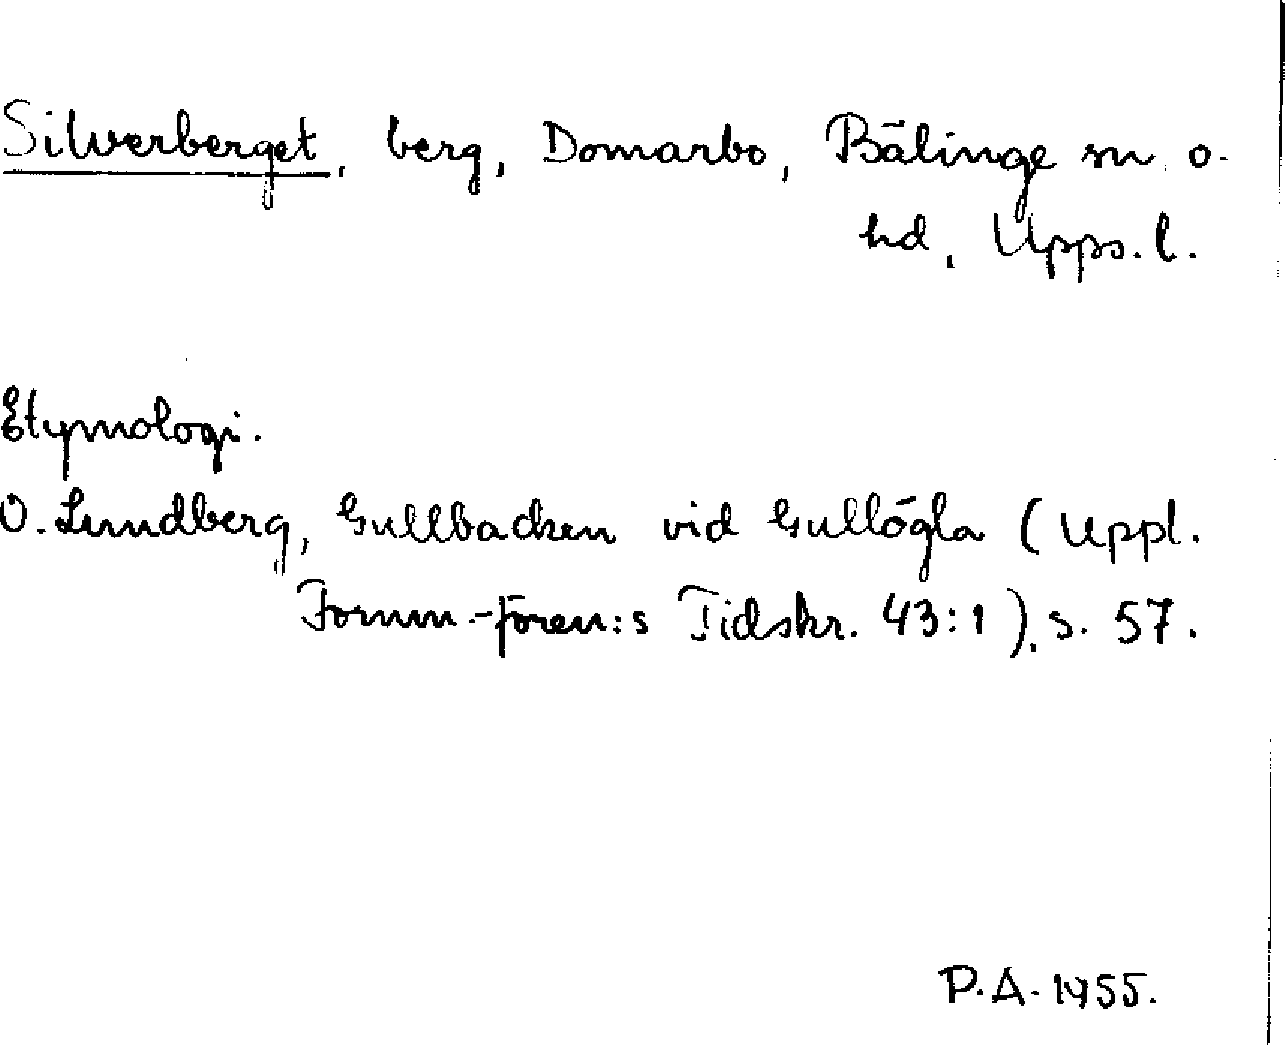 Silverberget, berg, Domarbo, Bälinge sn o.
hd, Upps. l.
Etymologi.
O. Lundberg, Gullbacken vid Gullögla (Uppl.
Fornm.-fören:s Tidskr. 43:1), s. 57.
P.A. 1955.